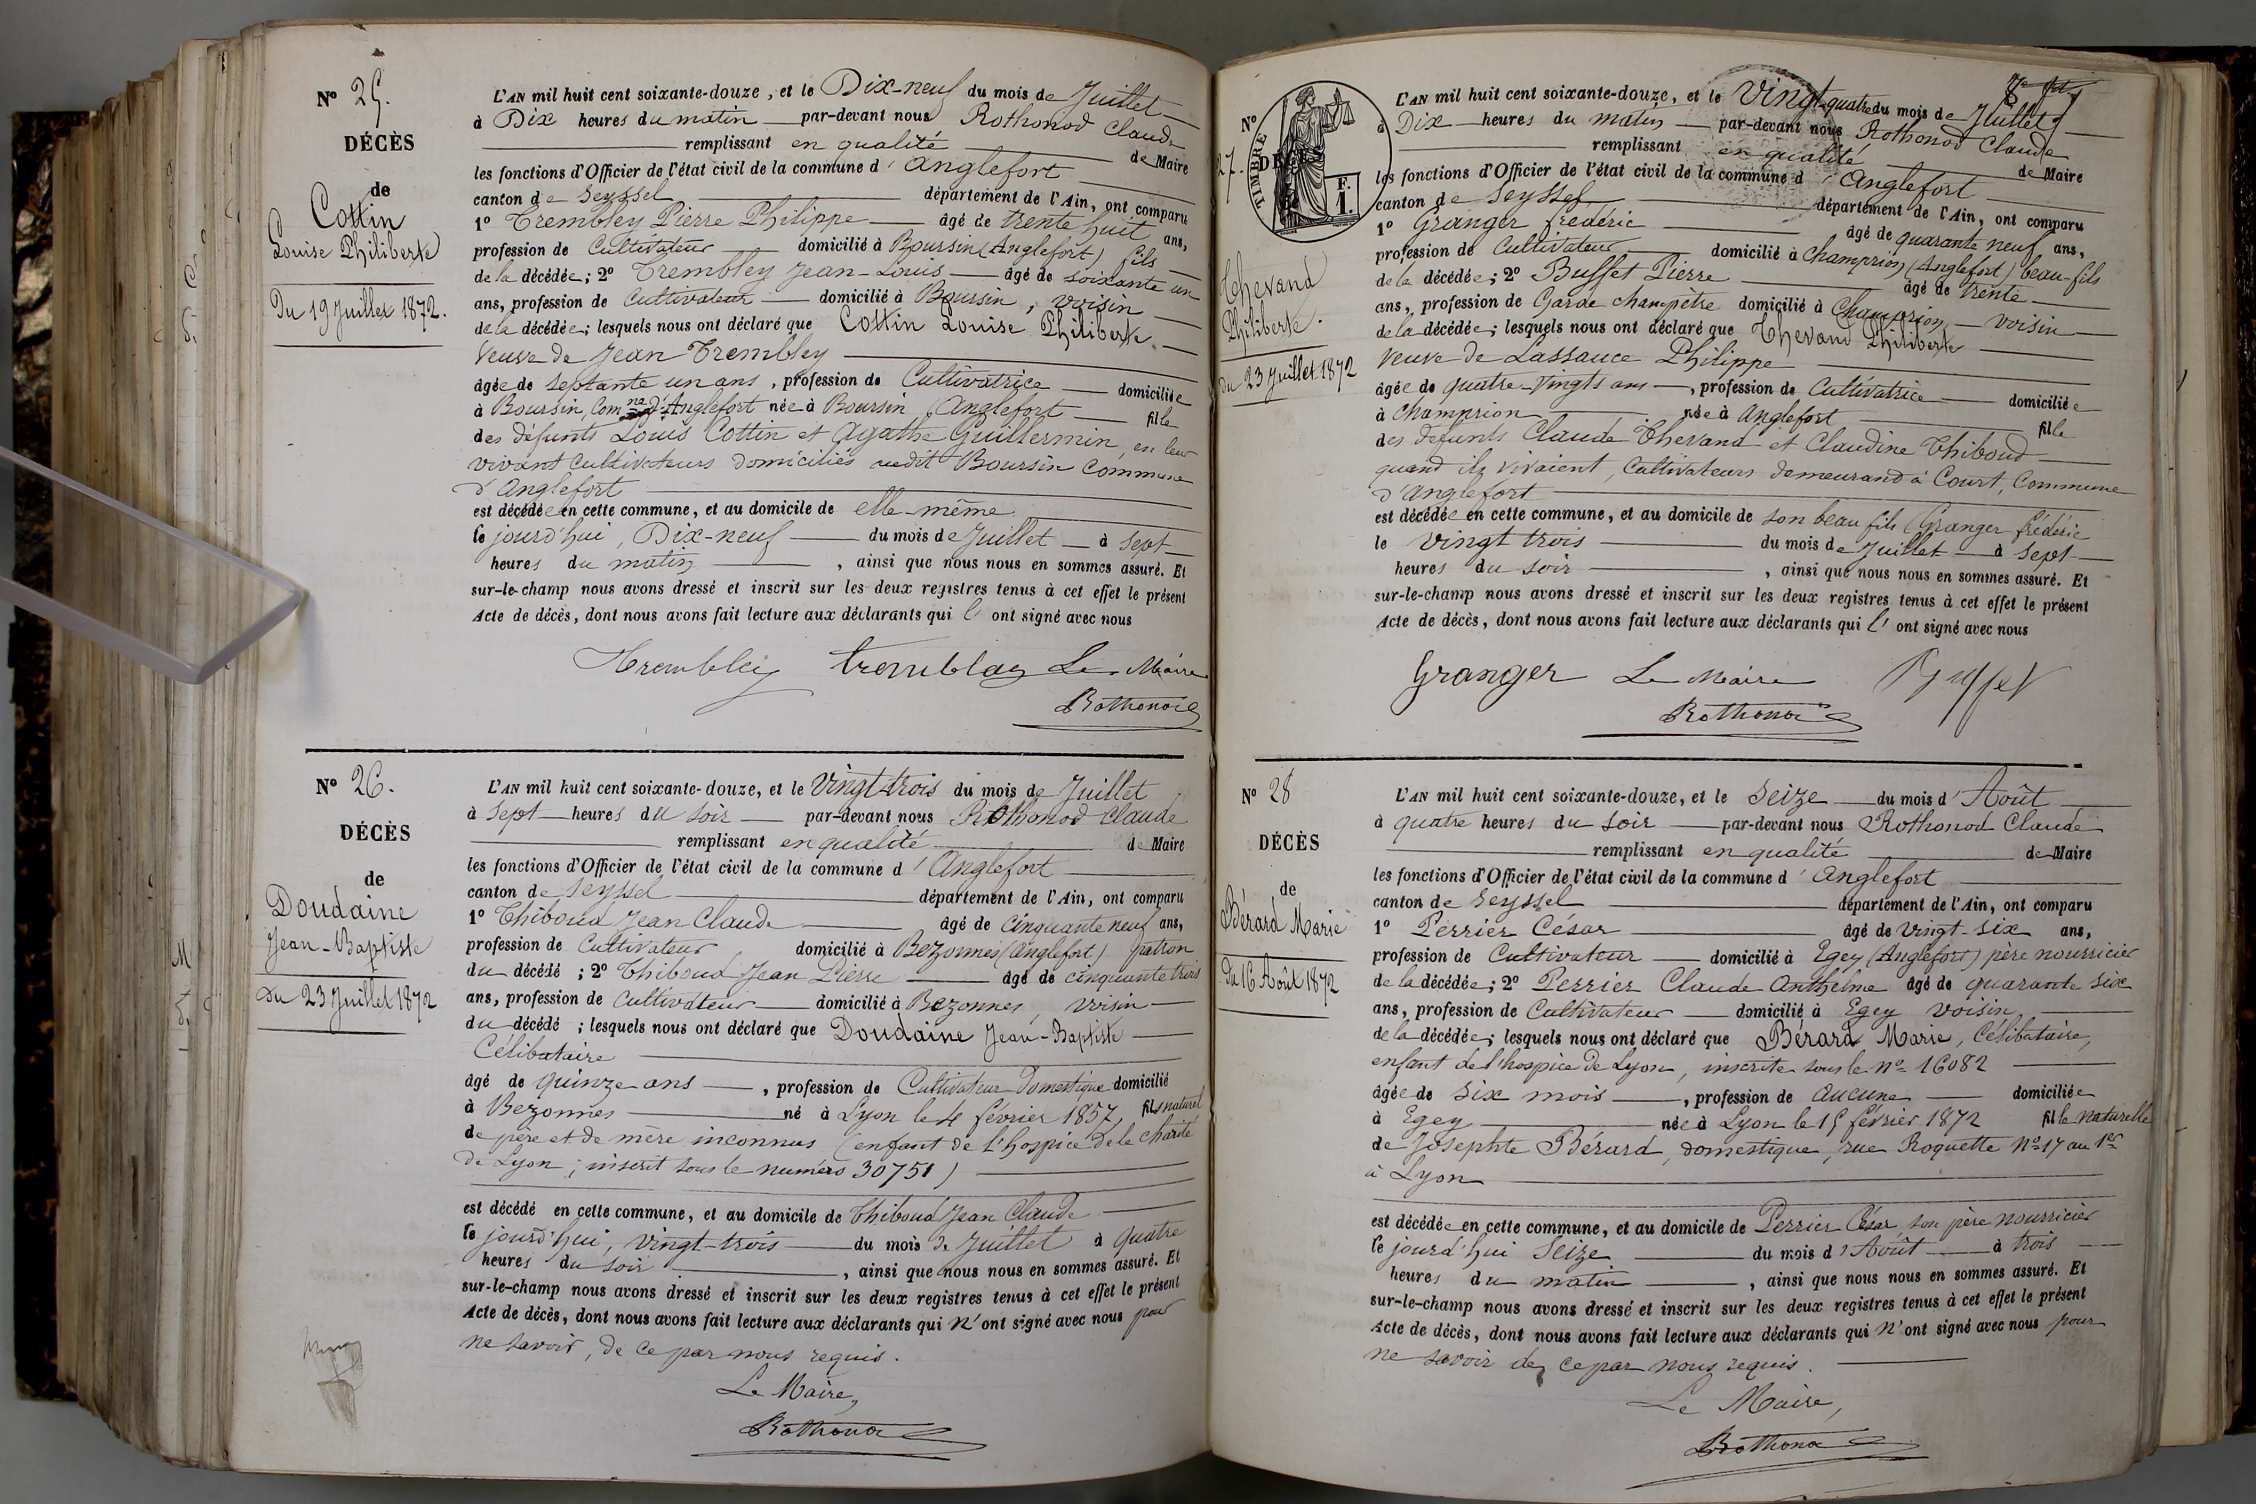 Nº 25.
DÉCÈS
de
Cottin
Louise Philiberte
Du 19 Juillet 1872.
L'AN mil huit cent soixante-douze, et le Dix-neuf du mois de Juillet
à Dix heures du matin par-devant nous Rothonod Claude
remplissant en qualité de Maire
les fonctions d'Officier de l'état civil de la commune d'Anglefort
canton de Seyssel département de l'Ain, ont comparu
1º Trembley Pierre Philippe âgé de trente huit ans,
profession de Cultivateur domicilié à Boursin (Anglefort) fils
de la décédée; 2º Trembley Jean-Louis âgé de soixante un
ans, profession de Cultivateur domicilié à Boursin, voisin
de la décédée; lesquels nous ont déclaré que Cottin Louise Philiberte
Veuve de Jean Trembley
âgée de septante un ans, profession de Cultivatrice domiciliée
à Boursin, Comne d'Anglefort née à Boursin, Anglefort fille
des défunts Louis Cottin et Agathe Guillermin, en leur
vivant Cultivateurs domiciliés audit Boursin Commune
d'Anglefort
est décédée en cette commune, et au domicile de elle-même
le jourd'hui, Dix-neuf du mois de Juillet à sept
heures du matin, ainsi que nous nous en sommes assuré. Et
sur-le-champ nous avons dressé et inscrit sur les deux registres tenus à cet effet le présent
Acte de décès, dont nous avons fait lecture aux déclarants qui l'ont signé avec nous
Trembley tremblay Le Maire
Rothonod
Nº 26.
DÉCÈS
de
Doudaine
Jean-Baptiste
Du 23 Juillet 1872
L'AN mil huit cent soixante-douze, et le Vingt-trois du mois de Juillet
à sept heures du soir par-devant nous Rothonod Claude
remplissant en qualité de Maire
les fonctions d'Officier de l'état civil de la commune d'Anglefort
canton de Seyssel département de l'Ain, ont comparu
1º Thiboud Jean Claude âgé de cinquante neuf ans,
profession de Cultivateur domicilié à Bezonnes (Anglefort) patron
du décédé; 2º Thiboud Jean Pierre âgé de cinquante trois
ans, profession de Cultivateur domicilié à Bezonnes, voisin
du décédé; lesquels nous ont déclaré que Doudaine Jean-Baptiste
Célibataire
âgé de quinze ans, profession de Cultivateur Domestique domicilié
à Bezonnes né à Lyon le 4 février 1857, fils naturel
de père et de mère inconnus (enfant de l'hospice de la charité
de Lyon; inscrit sous le numéro 30751)
est décédé en cette commune, et au domicile de Thiboud Jean Claude
le jourd'hui, vingt-trois du mois de Juillet à quatre
heures du soir, ainsi que nous nous en sommes assuré. Et
sur-le-champ nous avons dressé et inscrit sur les deux registres tenus à cet effet le présent
Acte de décès, dont nous avons fait lecture aux déclarants qui n'ont signé avec nous pour
ne savoir, de ce par nous requis.
Le Maire,
Rothonod
Nº
27.
DÉCÈS
TIMBRE
F.
1.
Thevand
Philiberte.
du 23 Juillet 1872
L'AN mil huit cent soixante-douze, et le Vingt-quatre du mois de Juillet
à Dix heures du matin par-devant nous Rothonod Claude
remplissant en qualité de Maire
les fonctions d'Officier de l'état civil de la commune d'Anglefort
canton de Seyssel département de l'Ain, ont comparu
1º Granger frédéric âgé de quarante neuf ans,
profession de Cultivateur domicilié à Champrion (Anglefort) beau-fils
de la décédée; 2º Buffet Pierre âgé de trente
ans, profession de Garde champêtre domicilié à Champrion voisin
de la décédée; lesquels nous ont déclaré que Thevand Philiberte
Veuve de Lassauce Philippe
âgée de quatre-vingts ans, profession de Cultivatrice domiciliée
à Champrion née à Anglefort fille
des défunts Claude Thevand et Claudine Thiboud
quand ils vivaient, Cultivateurs demeurand à Court, Commune
d'Anglefort
est décédée en cette commune, et au domicile de son beau fils Granger frédéric
le vingt trois du mois de Juillet à sept
heures du soir, ainsi que nous nous en sommes assuré. Et
sur-le-champ nous avons dressé et inscrit sur les deux registres tenus à cet effet le présent
Acte de décès, dont nous avons fait lecture aux déclarants qui l'ont signé avec nous
Granger Le Maire Buffet
Rothonod
Nº 28
DÉCÈS
de
Bérard Marie
Du 16 Août 1872
L'AN mil huit cent soixante-douze, et le seize du mois d'Août
à quatre heures du soir par-devant nous Rothonod Claude
remplissant en qualité de Maire
les fonctions d'Officier de l'état civil de la commune d'Anglefort
canton de Seyssel département de l'Ain, ont comparu
1º Perrier César âgé de vingt-six ans,
profession de Cultivateur domicilié à Egey (Anglefort) père nourricier
de la décédée; 2º Perrier Claude Anthelme âgé de quarante six
ans, profession de Cultivateur domicilié à Egey voisin
de la décédée; lesquels nous ont déclaré que Bérard Marie, Célibataire,
enfant de l'hospice de Lyon, inscrite sous le nº 16082
âgée de six mois, profession de aucune domiciliée
à Egey née à Lyon le 15 février 1872 fille naturelle
de Josephte Bérard, domestique, rue Roquette Nº 17 au 1er
à Lyon
est décédée en cette commune, et au domicile de Perrier César son père nourricier
le jourd'hui Seize du mois d'Août à trois
heures du matin, ainsi que nous nous en sommes assuré. Et
sur-le-champ nous avons dressé et inscrit sur les deux registres tenus à cet effet le présent
Acte de décès, dont nous avons fait lecture aux déclarants qui n'ont signé avec nous pour
ne savoir de ce par nous requis.
Le Maire,
Rothonod